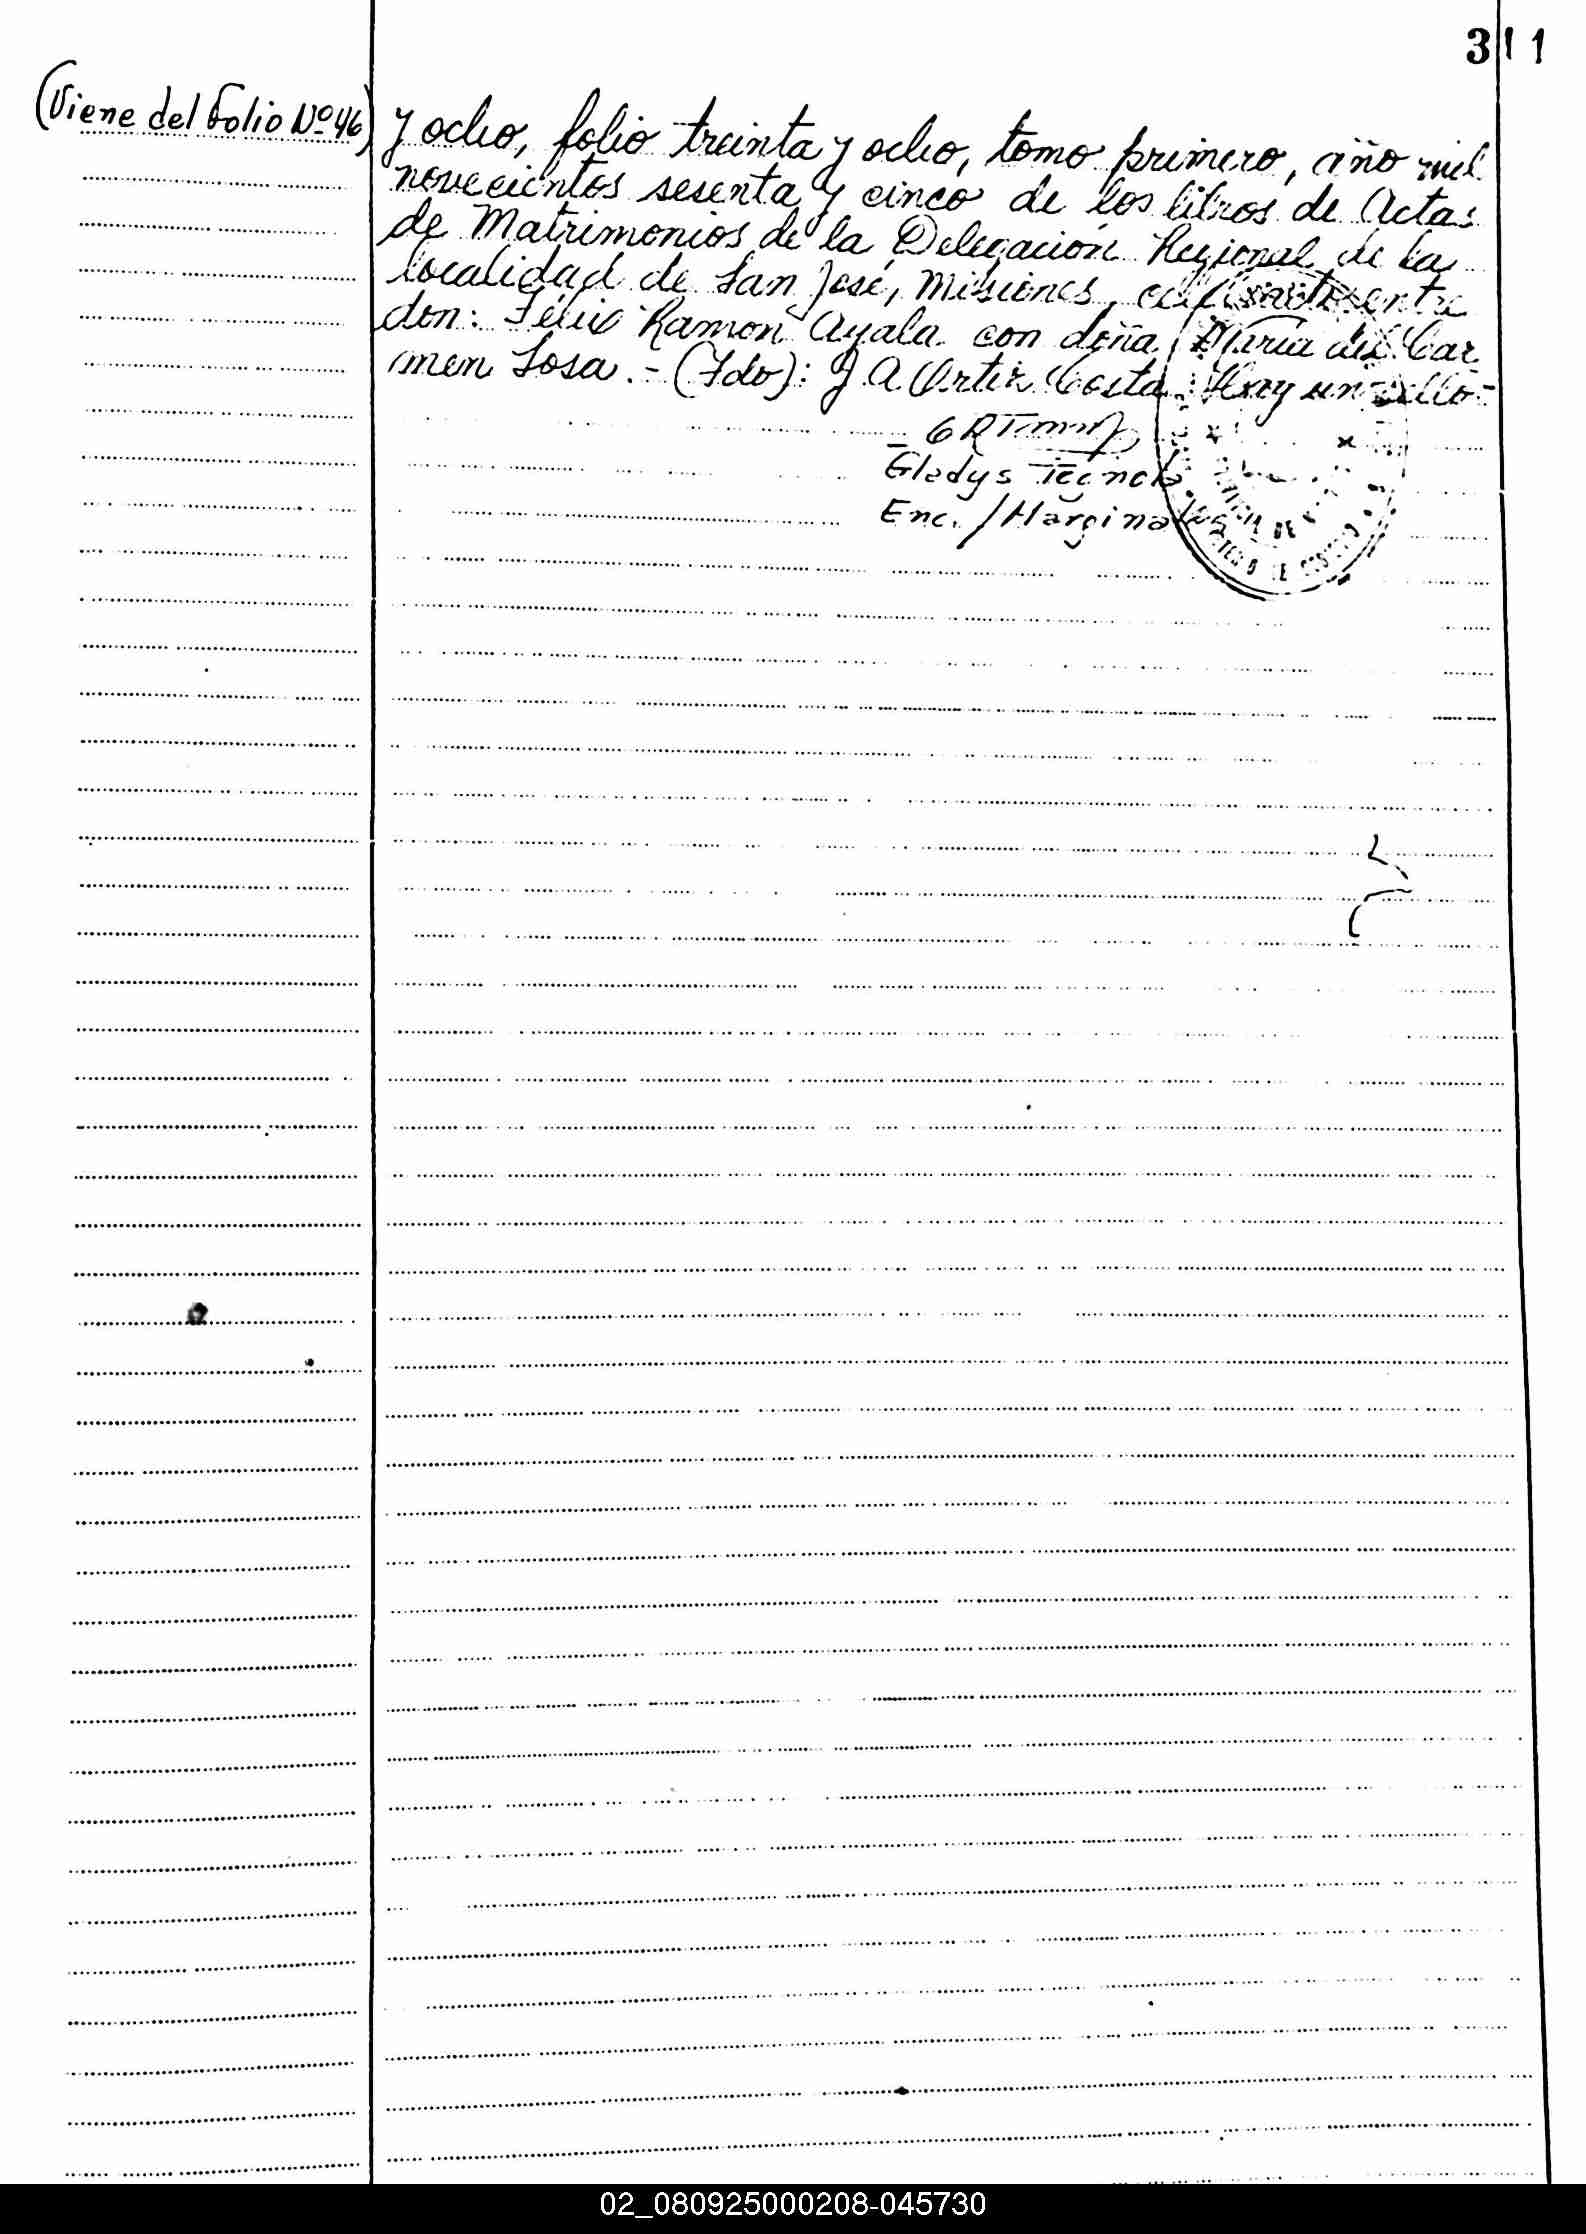 311
(Viene del folio Nº 46)
y ocho, folio treinta y ocho, tomo primero, año mil
novecientos sesenta y cinco de los libros de Actas
de Matrimonios de la Delegación Regional de la
localidad de San José, Misiones, entre
don: Félix Ramon Ayala con doña María del Car
men Sosa.- (Fdo): J A Ortiz Costa Hay un sello-
Gladys
Enc. / Marginales
02_080925000208-045730